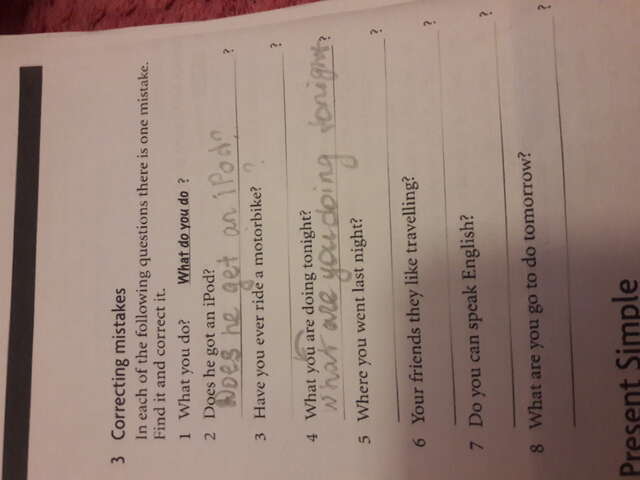 3 Correcting mistakes
In each of the following questions there is one mistake.
Find it and correct it.
1 What you do? What do you do ?
2 Does he got an iPod?
Does he get an iPod? ?
3 Have you ever ride a motorbike? ?
?
4 What you are doing tonight?
What are you doing tonight ?
5 Where you went last night?
?
6 Your friends they like travelling?
?
7 Do you can speak English?
?
8 What are you go to do tomorrow?
?
Present Simple